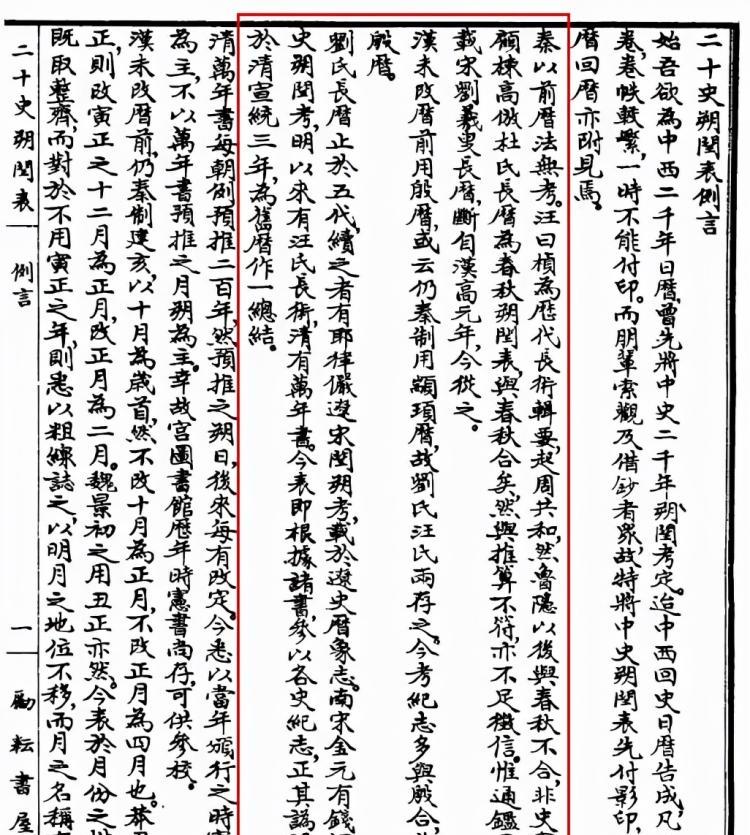 二十史朔閏表例言
始吾欲為中西二千年日曆,曾先將中史二千年朔閏考定。迨中西回史日曆告成,凡
卷,卷帙較繁,一時不能付印。而朋輩索觀及借鈔者眾,故特將中史朔閏表先付影印,
曆回曆亦附見焉。
秦以前曆法無考。汪曰楨為歷代長術輯要,起周共和,然魯隱以後與春秋不合,非史
顧棟高倣杜氏長曆為春秋朔閏表,與春秋合矣,然與推算不符,亦不足徵信。惟通鑑
載宋劉羲叟長曆,斷自漢高元年,今從之。
漢未改曆前用殷曆,或云仍秦制用顓頊曆,故劉氏汪氏兩存之。今考紀志多與殷合,
殷曆。
劉氏長曆止於五代,續之者有耶律儼遼宋閏朔考,載於遼史曆象志。南宋金元有錢
史朔閏考,明以來有汪氏長術,清有萬年書。今表即根據諸書,參以各史紀志,正其譌
於清宣統三年,為舊曆作一總結。
清萬年書每朝例預推二百年,然預推之朔日,後來每有改定。今悉以當年頒行之時
為主,不以萬年書預推之月朔為主。幸故宮圖書館歷年時憲書尚存,可供參校。
漢未改曆前,仍秦制建亥,以十月為歲首,然不改十月為正月,不改正月為四月也。莽
正,則改寅正之十二月為正月,改正月為二月。魏景初之用丑正亦然。今表於月份之
既取整齊,而對於不用寅正之年,則悉以粗線誌之,以明月之地位不移,而月之名稱
二十史朔閏表
例言
一
勵耘書屋